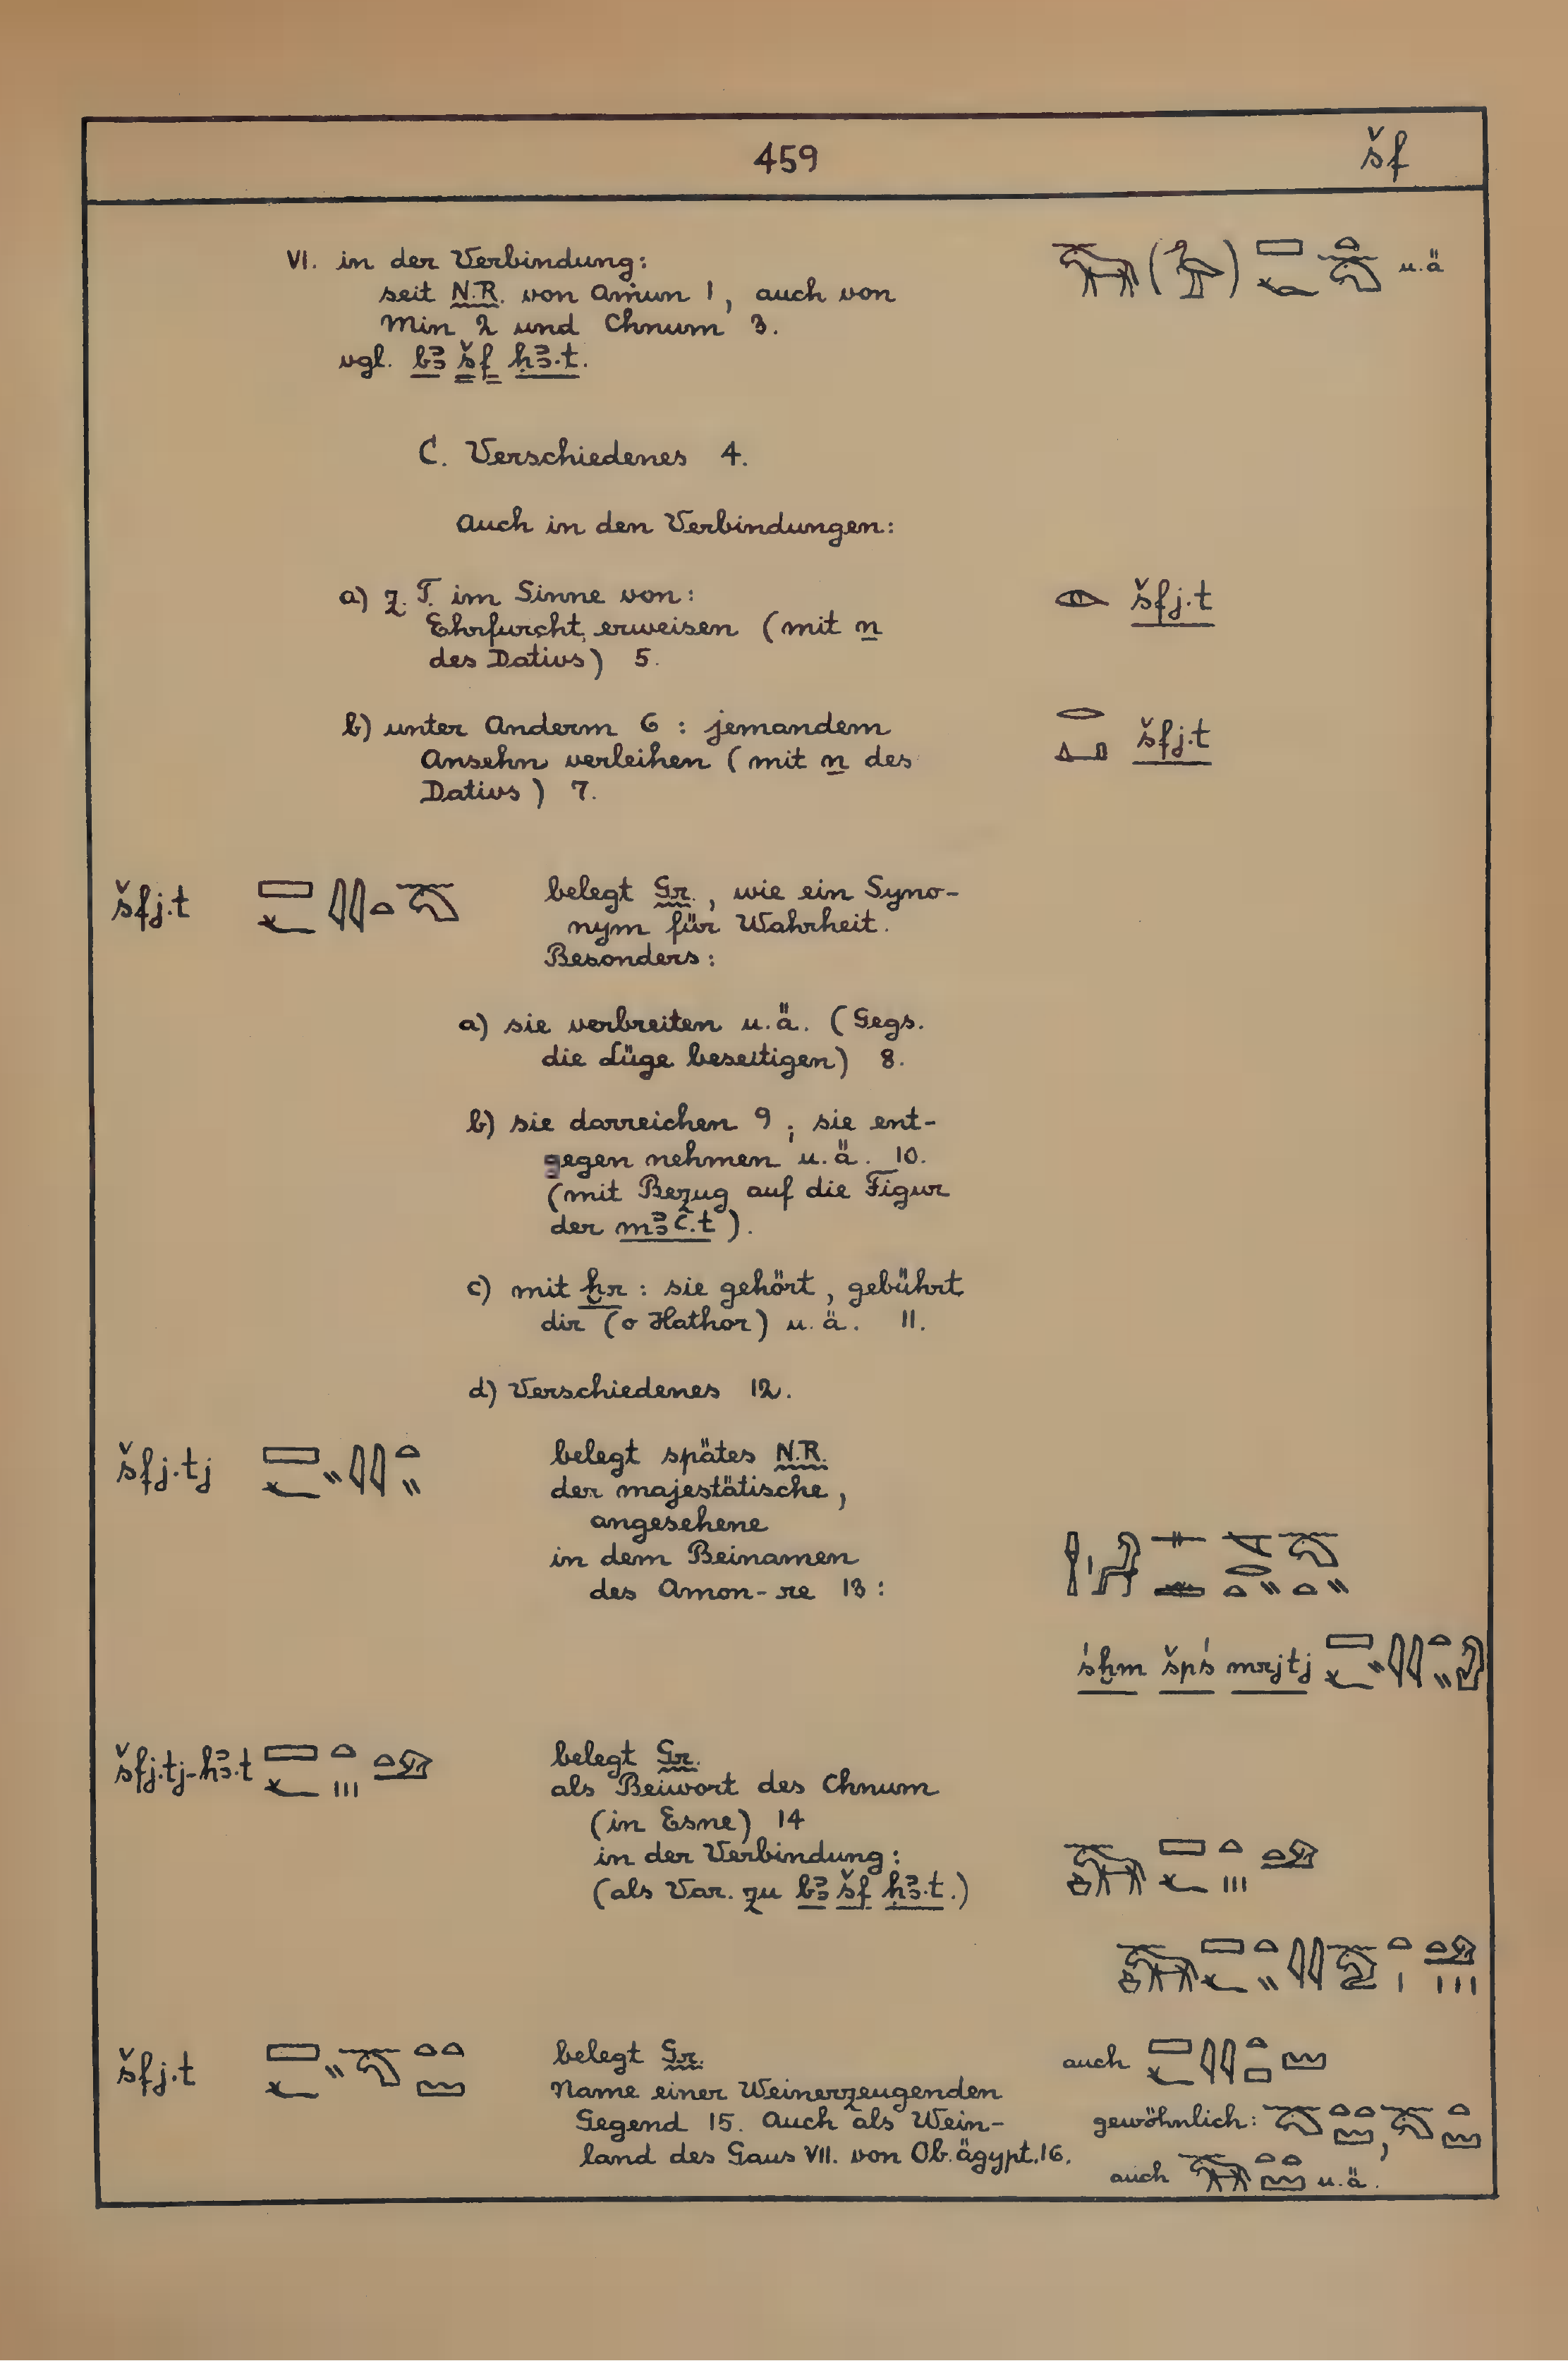 459 šf
VI. in der Verbindung:
seit N.R. von Amun 1, auch von
Min 2 und Chnum 3.
u.ä
vgl. bꜣ šf ḥꜣ.t.
C. Verschiedenes 4.
Auch in den Verbindungen:
a) z. T. im Sinne von: šfj.t
Ehrfurcht erweisen (mit n
des Dativs) 5.
b) unter Anderm 6 : jemandem šfj.t
Ansehn verleihen (mit n des
Dativs) 7.
šfj.t belegt Gr., wie ein Syno-
nym für Wahrheit.
Besonders:
a) sie verbreiten u.ä. (Gegs.
die Lüge beseitigen) 8.
b) sie darreichen 9 ; sie ent-
gegen nehmen u.ä. 10.
(mit Bezug auf die Figur
der mꜣꜥ.t).
c) mit ḫr : sie gehört, gebührt
dir (o Hathor) u. ä. 11.
d) Verschiedenes 12.
šfj.tj belegt spätes N.R.
der majestätische,
angesehene
in dem Beinamen
des Amon-re 13 :
śḫm špś mrjtj
šfj.tj-ḥꜣ.t belegt Gr.
als Beiwort des Chnum
(in Esne) 14
in der Verbindung:
(als Var. zu bꜣ šf ḥꜣ.t.)
šfj.t belegt Gr. auch
Name einer Weinerzeugenden
Gegend 15. Auch als Wein- gewöhnlich: ,
land des Gaus VII. von Ob.ägypt.16.
auch u.ä.